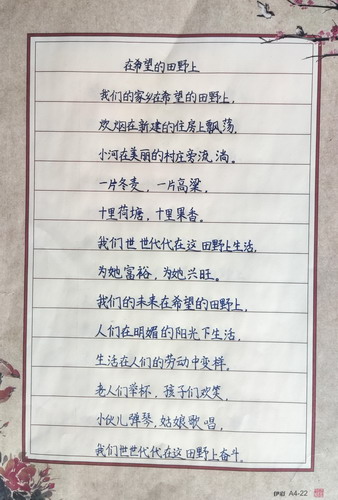 在希望的田野上
我们的家乡在希望的田野上，
炊烟在新建的住房上飘荡，
小河在美丽的村庄旁流淌。
一片冬麦，一片高粱，
十里荷塘，十里果香。
我们世世代代在这田野上生活，
为她富裕，为她兴旺。
我们的未来在希望的田野上，
人们在明媚的阳光下生活，
生活在人们的劳动中变样。
老人们举杯，孩子们欢笑，
小伙儿弹琴，姑娘歌唱，
我们世世代代在这田野上奋斗。
伊和 A4-22